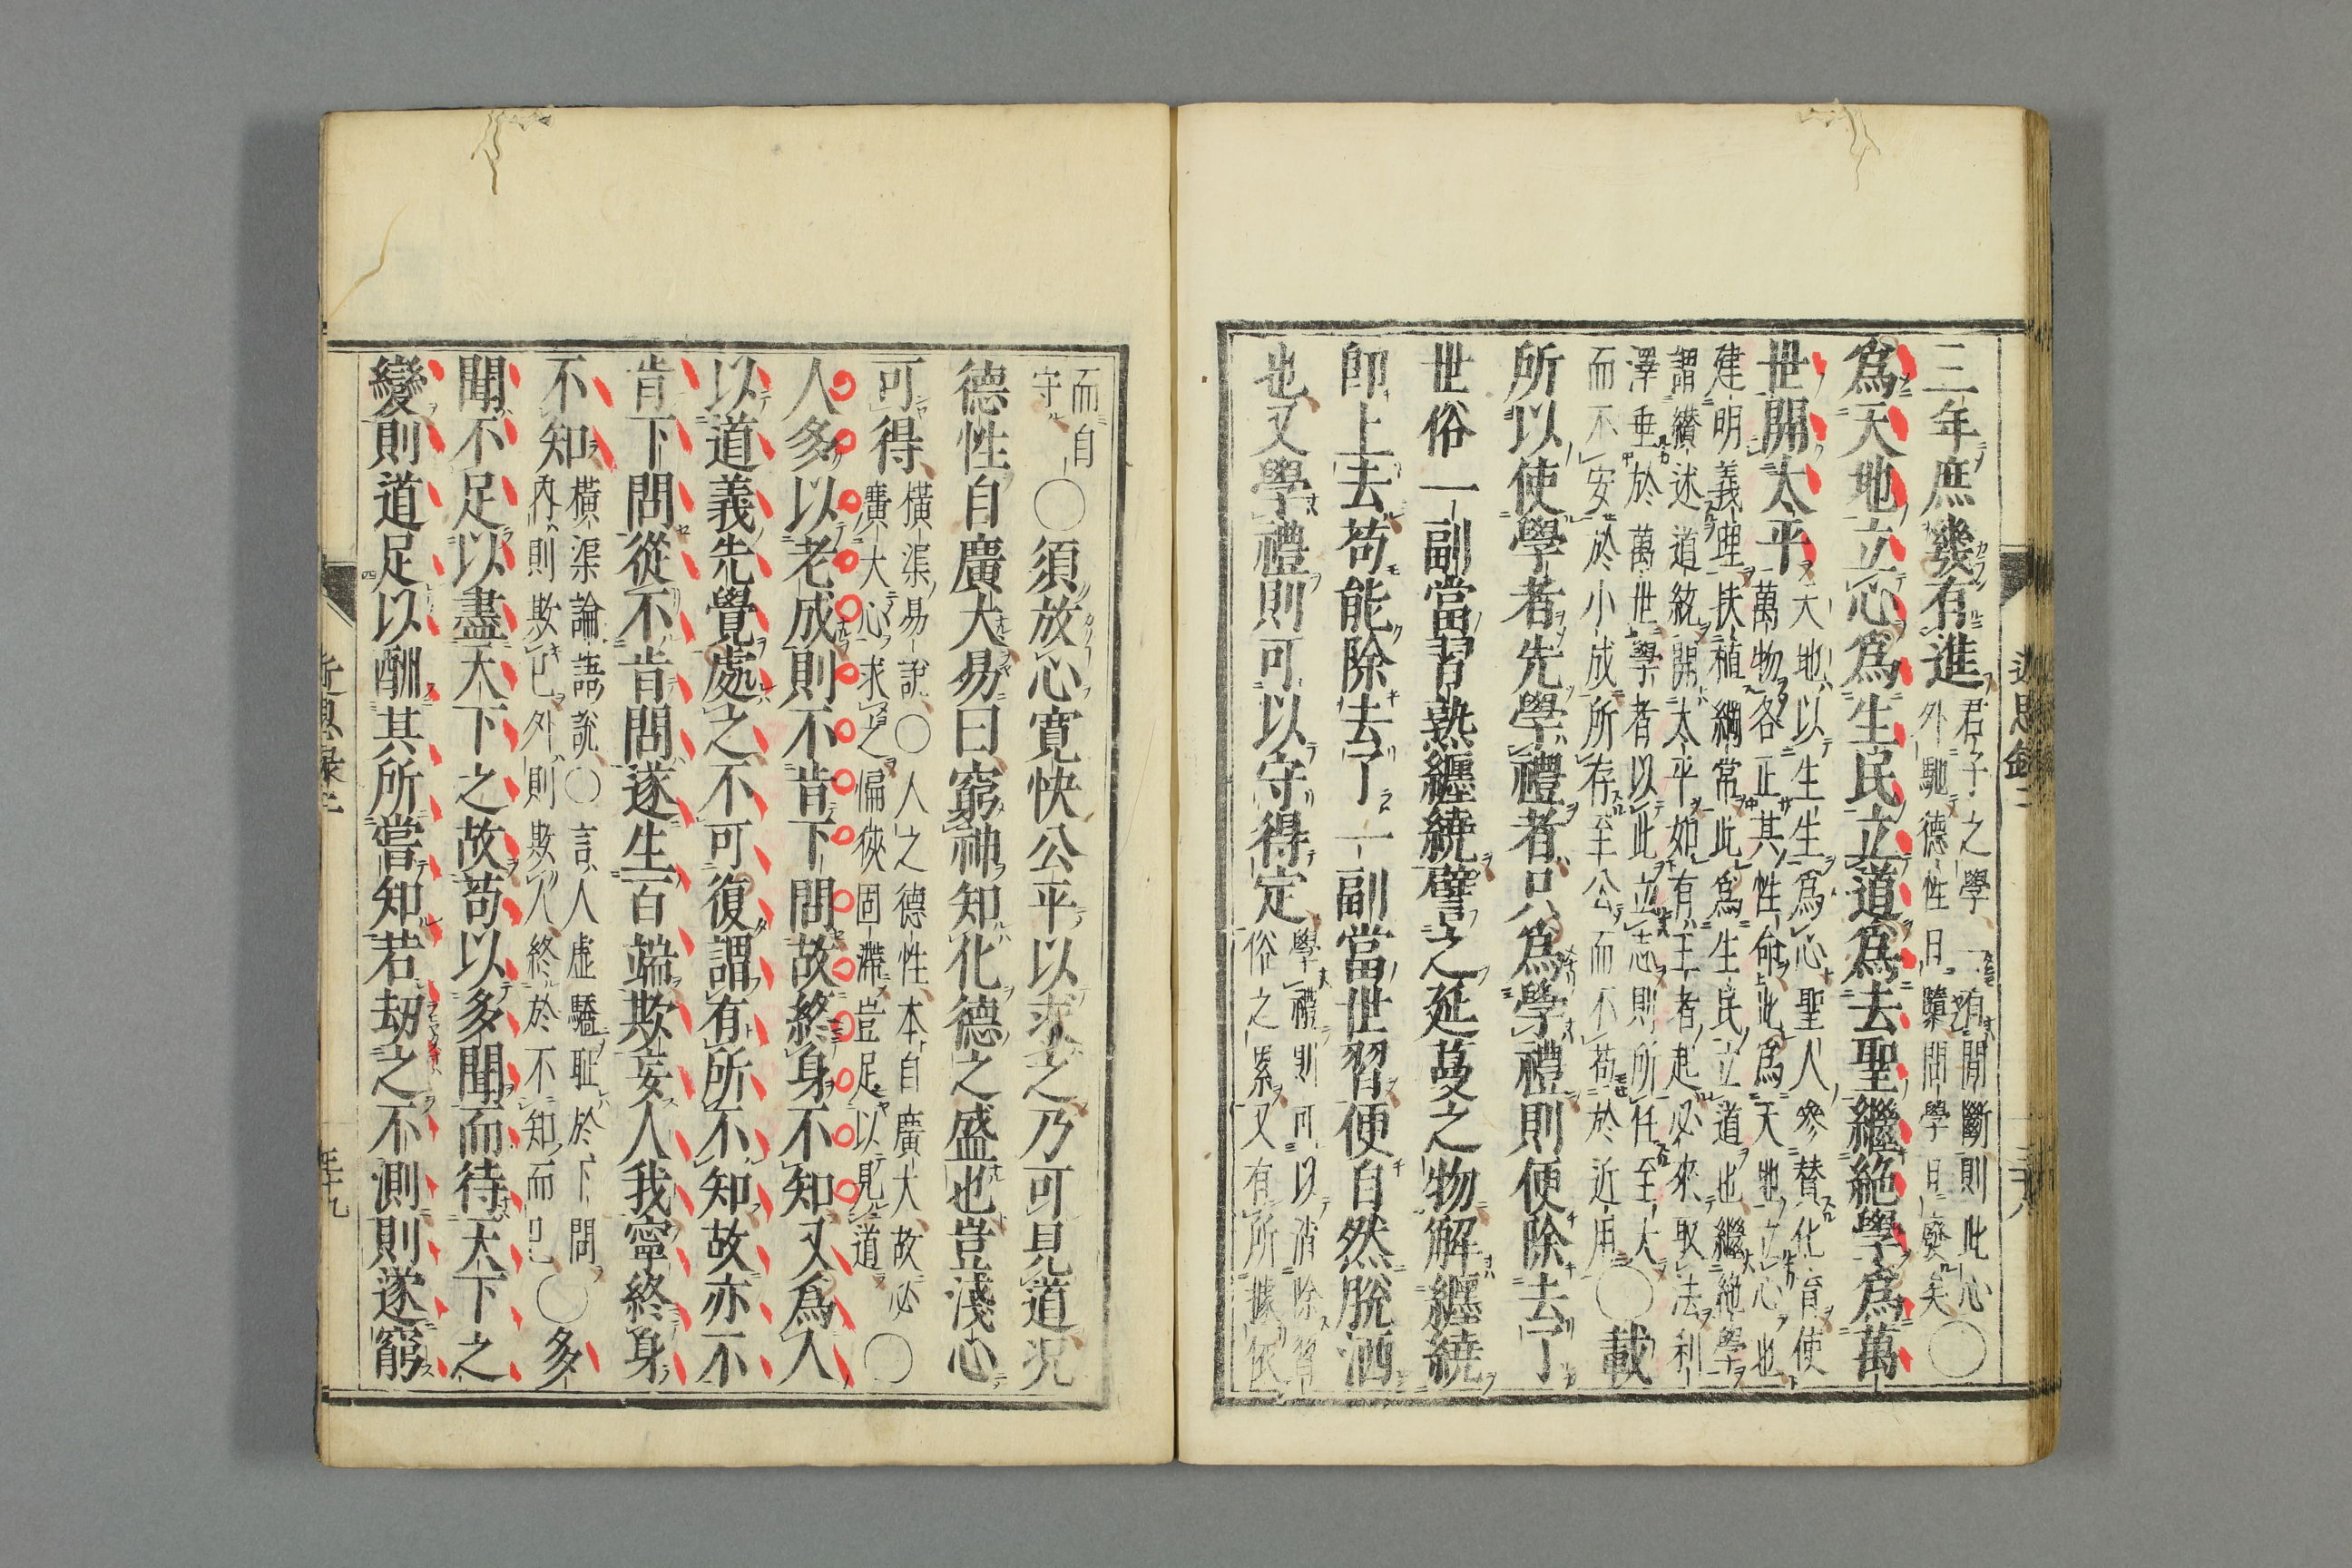 近思錄二
三十八
三年庶幾有進君子之學一有間斷則此心
外馳德性日隳問學日廢矣〇
爲天地立心爲生民立道爲去聖繼絶學爲萬
世開太平天地以生生爲心聖人參贊化育使
萬物各正其性命此爲天地立心也
建明義理扶植綱常此爲生民立道也繼絶學
謂纘述道統開太平如有王者起必來取法利
澤垂於萬世學者以此立志則所任至大
而不安於小成所存至公而不苟於近用〇載
所以使學者先學禮者只爲學禮則便除去了
世俗一副當習熟纏繞譬之延蔓之物解纏繞
卽上去苟能除去了一副當世習便自然脫洒
也又學禮則可以守得定學禮則可以消除習
俗之累又有所據依
而自
守〇須放心寬快公平以求之乃可見道况
德性自廣大易曰窮神知化德之盛也豈淺心
可得橫渠易說〇人之德性本自廣大故必
廣大心求之偏狹固滯豈足以見道〇
人多以老成則不肯下問故終身不知又爲人
以道義先覺處之不可復謂有所不知故亦不
肯下問從不肯問遂生百端欺妄人我寧終身
不知橫渠論語說〇言人虛驕恥於下問
內則欺己外則欺人終於不知而已〇多
聞不足以盡天下之故苟以多聞而待天下之
變則道足以酬其所嘗知若劫之不測則遂窮
近思錄二
三十九